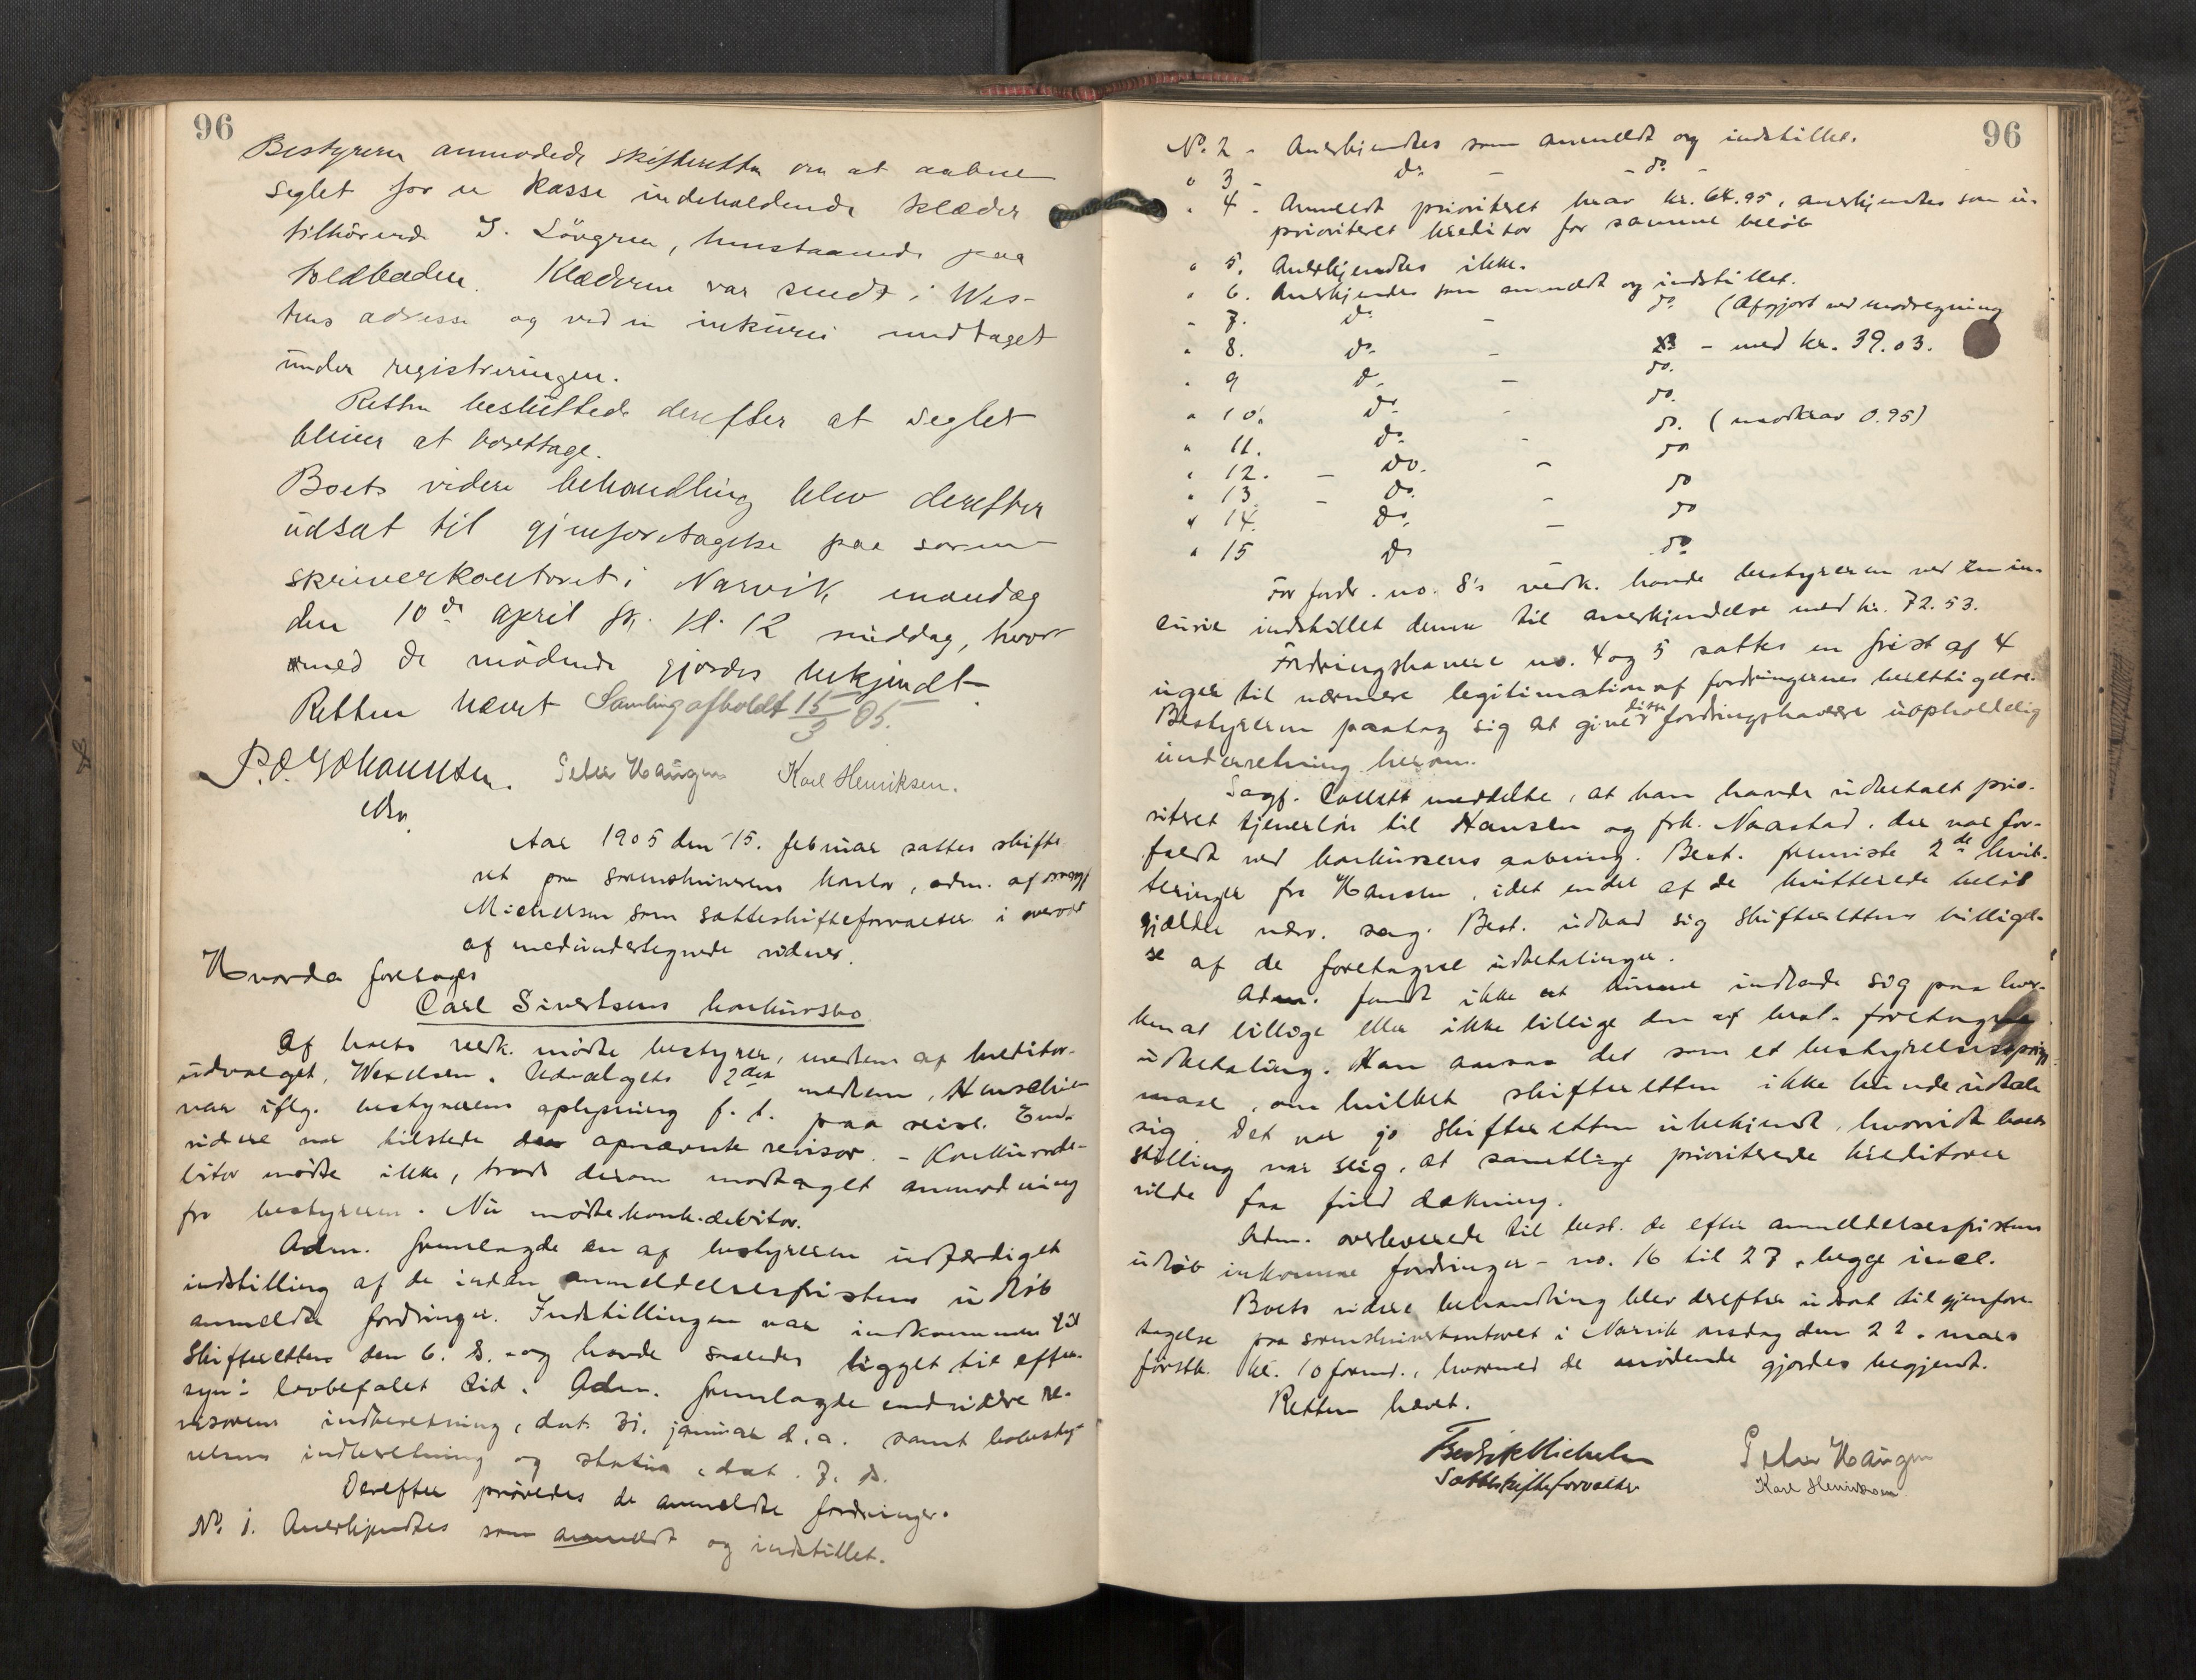 96
Bestyreren anmodede skifteretten om at aabne
seglet for en kasse indeholdende klæder
tilhørende J. Lövgren, henstaaende paa
toldboden. Klæderne var sendt i Wes-
tens adresse og ved en inkurie medtaget
under registreringen.
Retten besluttede derefter at seglet
bliver at borttage.
Boets videre behandling blev derefter
udsat til gjenforetagelse paa soren-
skriverkontoret i Narvik mandag
den 10de april fk. kl. 12 middag, hvor
med de mödende gjordes bekjendt.
Retten hævet Samling afholdt 15/3 05.
P. O. Johannsen. Peter Haugen Karl Henriksen.
Aar 1905 den 15. februar sattes skifte
ret paa sorenskriverens kontor, adm. af
Michelsen som sætteskifteforvalter i overvær
af medundertegnede vidner.
Hvorda foretoges
Carl Sivertsens konkursbo
Af boets vedk. mødte bestyrer, medlem af kreditor-
udvalget, Wexelsen. Udvalgets 2det medlem,
var iflg. bestyrerens oplysning f. t. paa reise. End-
videre var tilstede den opnævnte revisor. - Konkursde-
bitor mødte ikke, trods derom modtaget anmodning
fra bestyreren. Nu mødte konk.debitor.
Adm. fremlagde en af bestyreren udfærdiget
indstilling af de inden anmeldelsesfristens udløb
anmeldte fordringer. Indstillingen var indkommen til
skifteretten den 6. ds. og havde saaledes ligget til efter-
syn i lovbefalet tid. Adm. fremlagde endvidere re-
visorens indberetning, dat. 31. januar d. a. samt bobesty-
relsens indberetning og status, dat. 7. ds.
Derefter prøvedes de anmeldte fordringer.
No. 1. Anerkjendtes som anmeldt og indstillet.
96
No. 2 - Anerkjendtes som anmeldt og indstillet.
" 3 - do - - do -
" 4 - Anmeldt prioritert krav kr. 64.95, anerkjendtes som u-
prioriteret kreditor for samme beløb
" 5. Anerkjendtes ikke.
" 6. Anerkjendtes som anmeldt og indstillet.
" 7. do - do (Afgjort ved modregning
" 8. do - - med kr. 39.03.
" 9 do - do.
" 10. do - do.
" 11. do - do. (modkrav 0.95)
" 12. - do. - do
" 13 - do. - do
" 14. do. - do
" 15 do do
For fordr. no. 8's vedk. havde bestyreren ved en in-
curie indstillet denne til anerkjendelse med kr. 72.53.
Fordringshaverne no. 4 og 5 sattes en frist af 4
uger til nærmere legitimation af fordringernes berettigelse.
Bestyreren paatog sig at give disse fordringshavere uopholdelig
underretning herom.
Sagf. Collett meddelte, at han havde udbetalt prio-
riteret tjenerløn til Hansen og frk. Naastad, der var for-
faldt ved konkursens aabning. Best. fremviste 2de kvit-
teringer fra Hansen, idet endel af de kvitterede beløb
gjældte nærv. sag. Best. udbad sig skifterettens billigel-
se af de foretagne udbetalinger.
Adm. fandt ikke at kunne indlade sig paa hver-
ken at billige eller ikke billige den af best. foretagne
udbetaling. Han ansaa det som et
maal, om hvilket skifteretten ikke kunde udtale
sig. Det var jo skifteretten ubekjendt, hvorvidt boets
stilling var slig, at samtlige prioriterede kreditorer
vilde faa fuld dækning.
Adm. overleverede til best. de efter anmeldelsesfristens
udløb inkomne fordringer - no. 16 til 27, begge incl.
Boets videre behandling blev derefter udsat til gjenfore-
tagelse paa sorenskriverkontoret i Narvik onsdag den 22. mars
førstk. kl. 10 formd., hvormed de mødende gjordes begjendt.
Retten hævet.
Fredrik Michelsen Peter Haugen
Sætteskifteforvalter Karl Henriksen